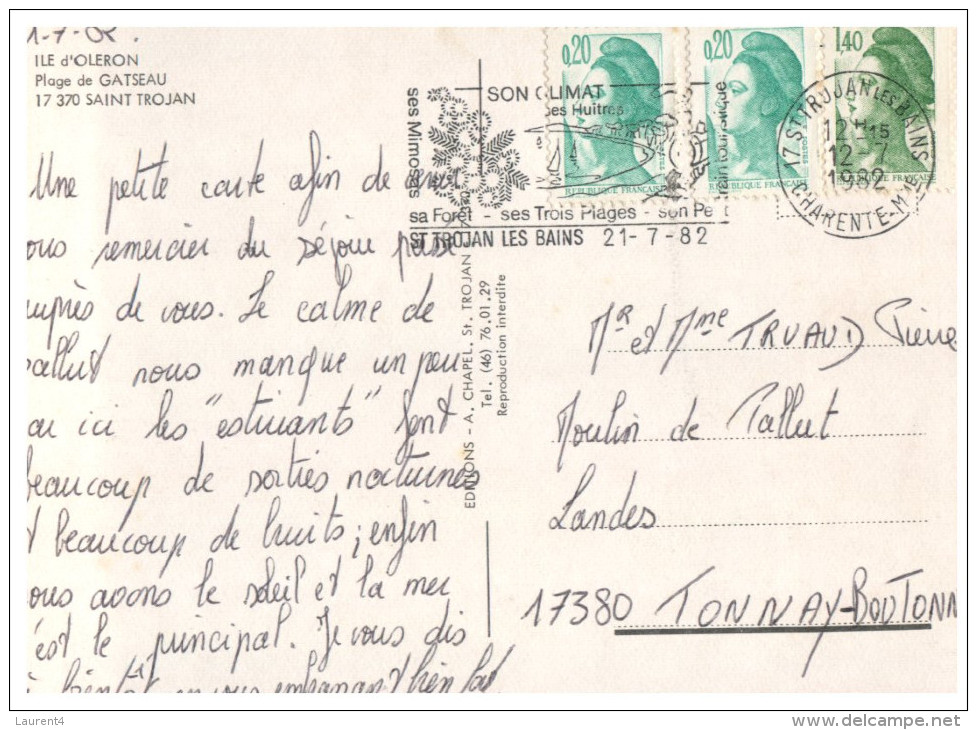 1-7-82.
ILE d'OLERON
Plage de GATSEAU
17 370 SAINT TROJAN
Une petite carte afin de
vous remercier du séjour passé
auprès de vous. Le calme de
Pallut nous manque un peu
car ici les "estivants" font
beaucoup de sorties nocturnes
et beaucoup de bruits; enfin
nous avons le soleil et la mer
c'est le principal. Je vous dis
à bientôt en vous embrassant bien fort
EDITIONS - A. CHAPEL. St. TROJAN
Tel. (46) 76.01.29
Reproduction interdite
0,20
0,20
1,40
REPUBLIQUE FRANÇAISE
REPUBLIQUE FRANÇAISE
SON CLIMAT
ses Huîtres
ses Mimosas
train touristique
sa Forêt - ses Trois Plages - son Pe t
ST TROJAN LES BAINS 21-7-82
17 ST TROJAN LES BAINS
12 H 15
12-7
1982
CHARENTE-MME
Mr et Mme TRUAUD Pierre
Moulin de Pallut
Landes
17380 TONNAY-BOUTONN
Laurent4
delcampe.net